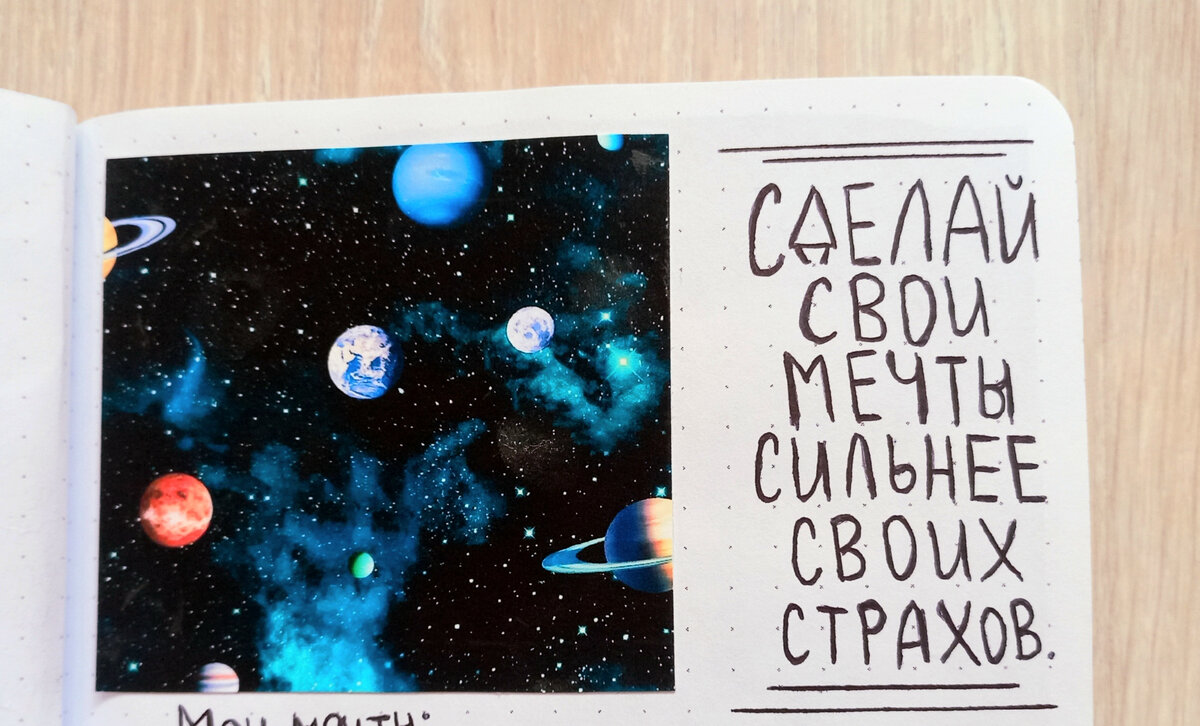 СДЕЛАЙ
СВОИ
МЕЧТЫ
СИЛЬНЕЕ
СВОИХ
СТРАХОВ.
Мои мечты: